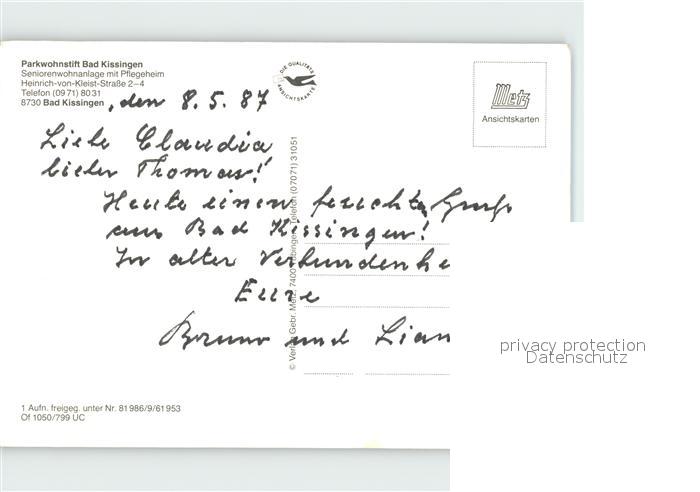 Parkwohnstift Bad Kissingen
Seniorenwohnanlage mit Pflegeheim
Heinrich-von-Kleist-Straße 2–4
Telefon (09 71) 80 31
8730 Bad Kissingen , den 8. 5. 87
DIE QUALITÄTS ANSICHTSKARTE
Metz
Ansichtskarten
Liebe Claudia
lieber Thomas!
Heute einen feuchten Gruß
aus Bad Kissingen!
In alter Verbundenhe
Eure
Bruno und Lian
© Verlag Gebr. Metz, 7400 Tübingen, Telefon (07071) 31051
privacy protection
Datenschutz
1 Aufn. freigeg. unter Nr. 81 986/9/61 953
Of 1050/799 UC